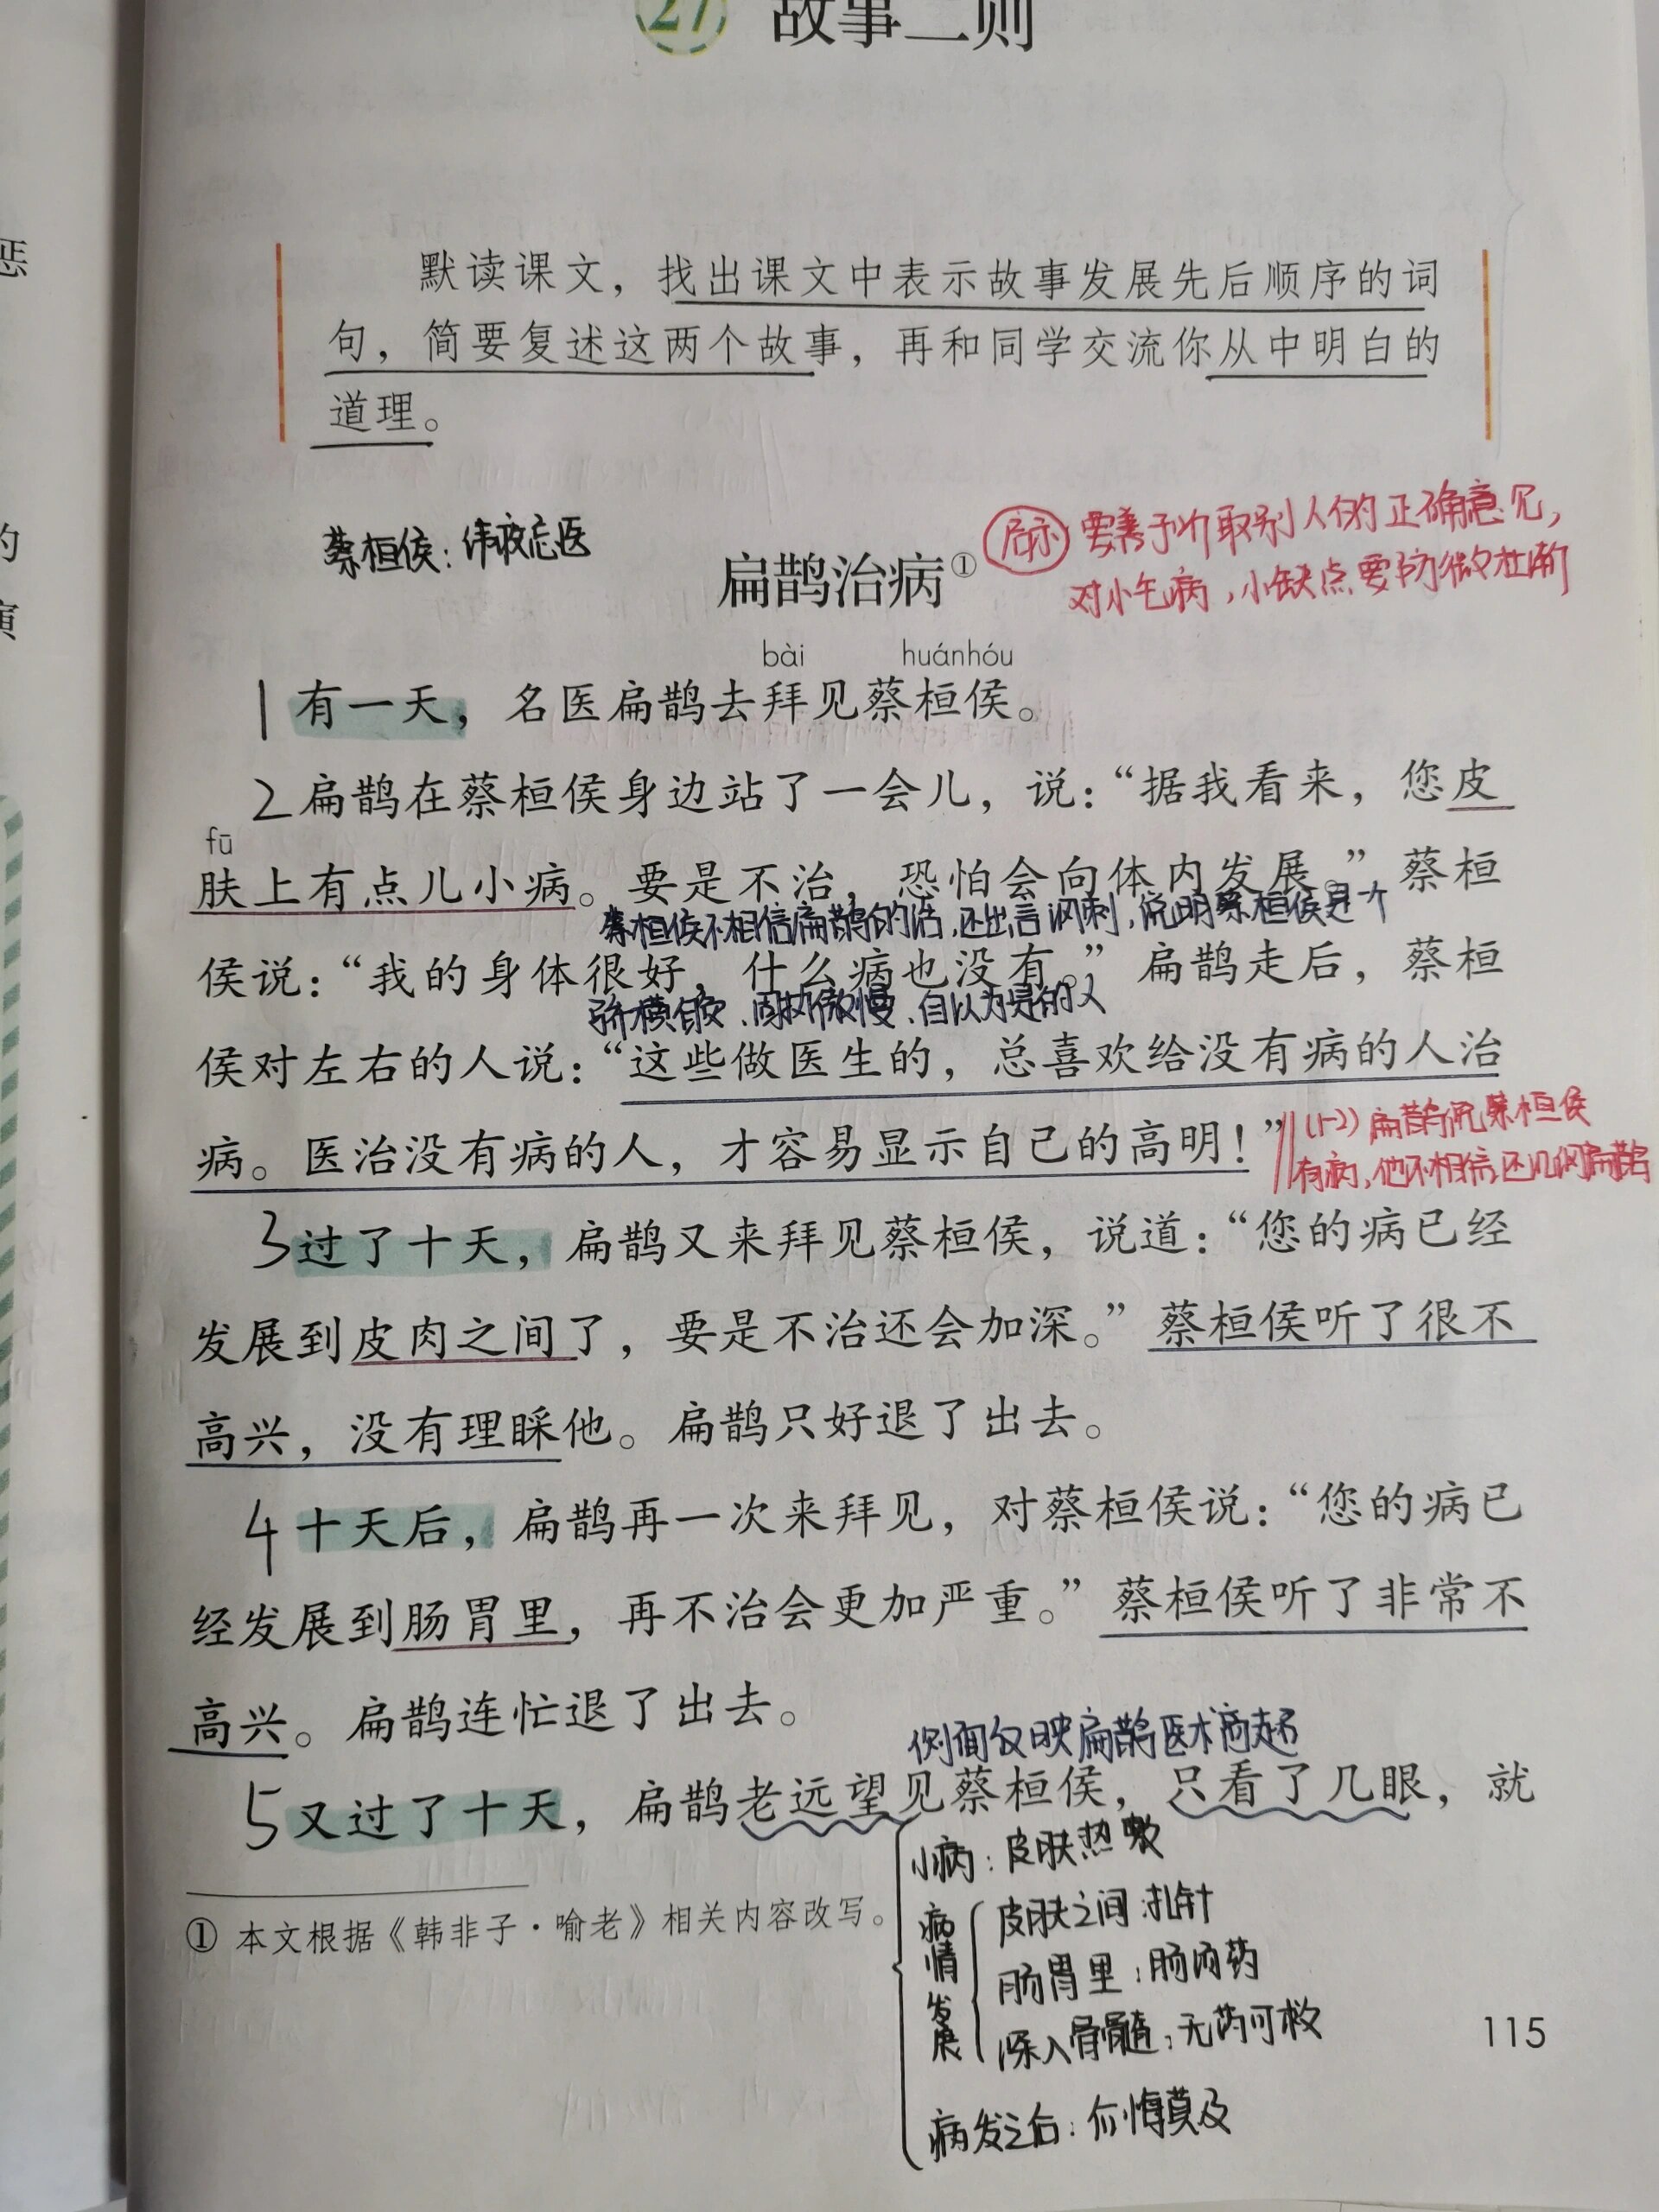 27 故事二则
默读课文，找出课文中表示故事发展先后顺序的词
句，简要复述这两个故事，再和同学交流你从中明白的
道理。
蔡桓侯：讳疾忌医
启示 要善于听取别人的正确意见，
对小毛病，小缺点要防微杜渐
扁鹊治病①
bài huánhóu
1 有一天，名医扁鹊去拜见蔡桓侯。
2 扁鹊在蔡桓侯身边站了一会儿，说：“据我看来，您皮
fū
肤上有点儿小病。要是不治，恐怕会向体内发展。”蔡桓
蔡桓侯不相信扁鹊的话，还出言讽刺，说明蔡桓侯是个
侯说：“我的身体很好，什么病也没有。”扁鹊走后，蔡桓
骄横自负、固执傲慢、自以为是的人
侯对左右的人说：“这些做医生的，总喜欢给没有病的人治
病。医治没有病的人，才容易显示自己的高明！”
(1-2) 扁鹊说蔡桓侯
有病，他不相信，还讥讽扁鹊
3 过了十天，扁鹊又来拜见蔡桓侯，说道：“您的病已经
发展到皮肉之间了，要是不治还会加深。”蔡桓侯听了很不
高兴，没有理睬他。扁鹊只好退了出去。
4 十天后，扁鹊再一次来拜见，对蔡桓侯说：“您的病已
经发展到肠胃里，再不治会更加严重。”蔡桓侯听了非常不
高兴。扁鹊连忙退了出去。
侧面反映扁鹊医术高超
5 又过了十天，扁鹊老远望见蔡桓侯，只看了几眼，就
小病：皮肤热敷
病情发展
皮肤之间：扎针
肠胃里：肠汤药
深入骨髓：无药可救
病发之后：后悔莫及
① 本文根据《韩非子·喻老》相关内容改写。
115
恶
的
演